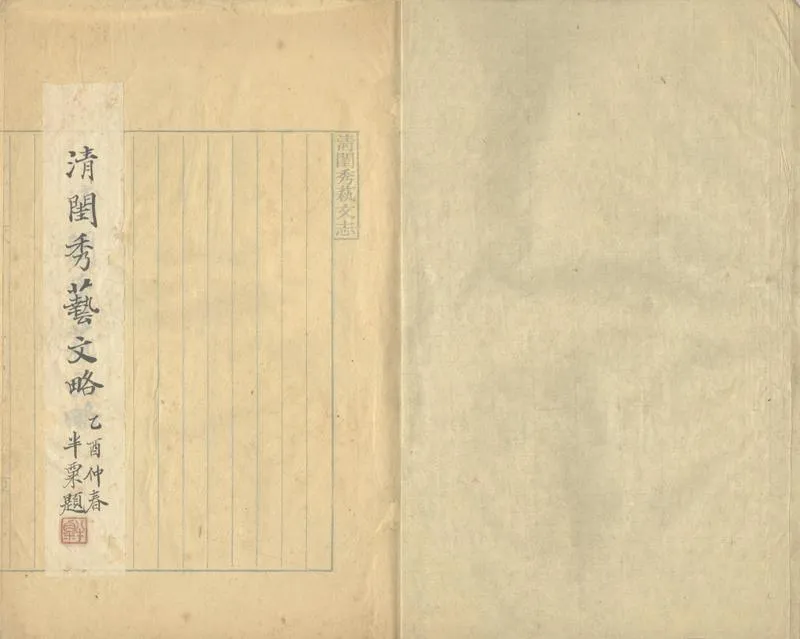 清閨秀藝文志
清閨秀藝文略
乙酉仲春
半粟題